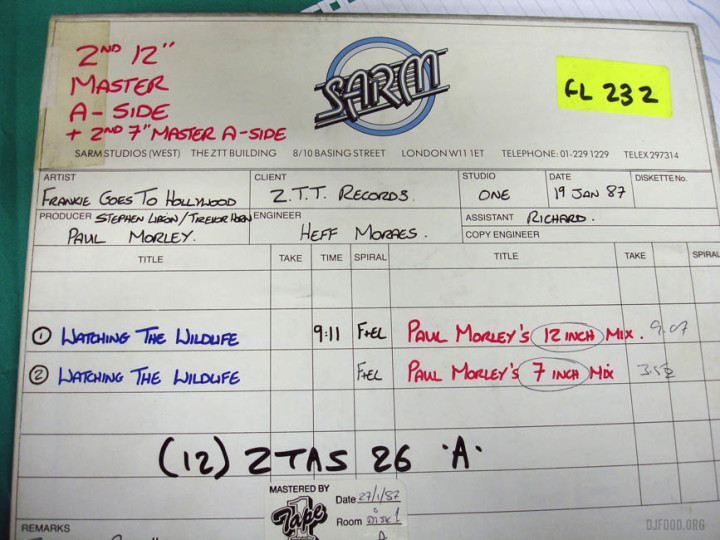 2ND 12"
MASTER
A-SIDE
+ 2ND 7" MASTER A-SIDE
SARM
FL 232
SARM STUDIOS (WEST) THE ZTT BUILDING 8/10 BASING STREET LONDON W11 1ET TELEPHONE: 01-229 1229 TELEX 297314
ARTIST CLIENT STUDIO DATE DISKETTE No.
FRANKIE GOES TO HOLLYWOOD Z.T.T. RECORDS. ONE 19 JAN 87
PRODUCER STEPHEN LIPSON/TREVOR HORN ENGINEER ASSISTANT RICHARD.
PAUL MORLEY. HEFF MORAES. COPY ENGINEER
TITLE TAKE TIME SPIRAL TITLE TAKE SPIRAL
① WATCHING THE WILDLIFE 9:11 F+EL PAUL MORLEY'S 12 INCH MIX. 9.07
② WATCHING THE WILDLIFE F+EL PAUL MORLEY'S 7 INCH MIX
(12) ZTAS 26 'A'
MASTERED BY
Tape 1
Date 27/1/87
Room DISK 1
A
REMARKS
DJFOOD.ORG